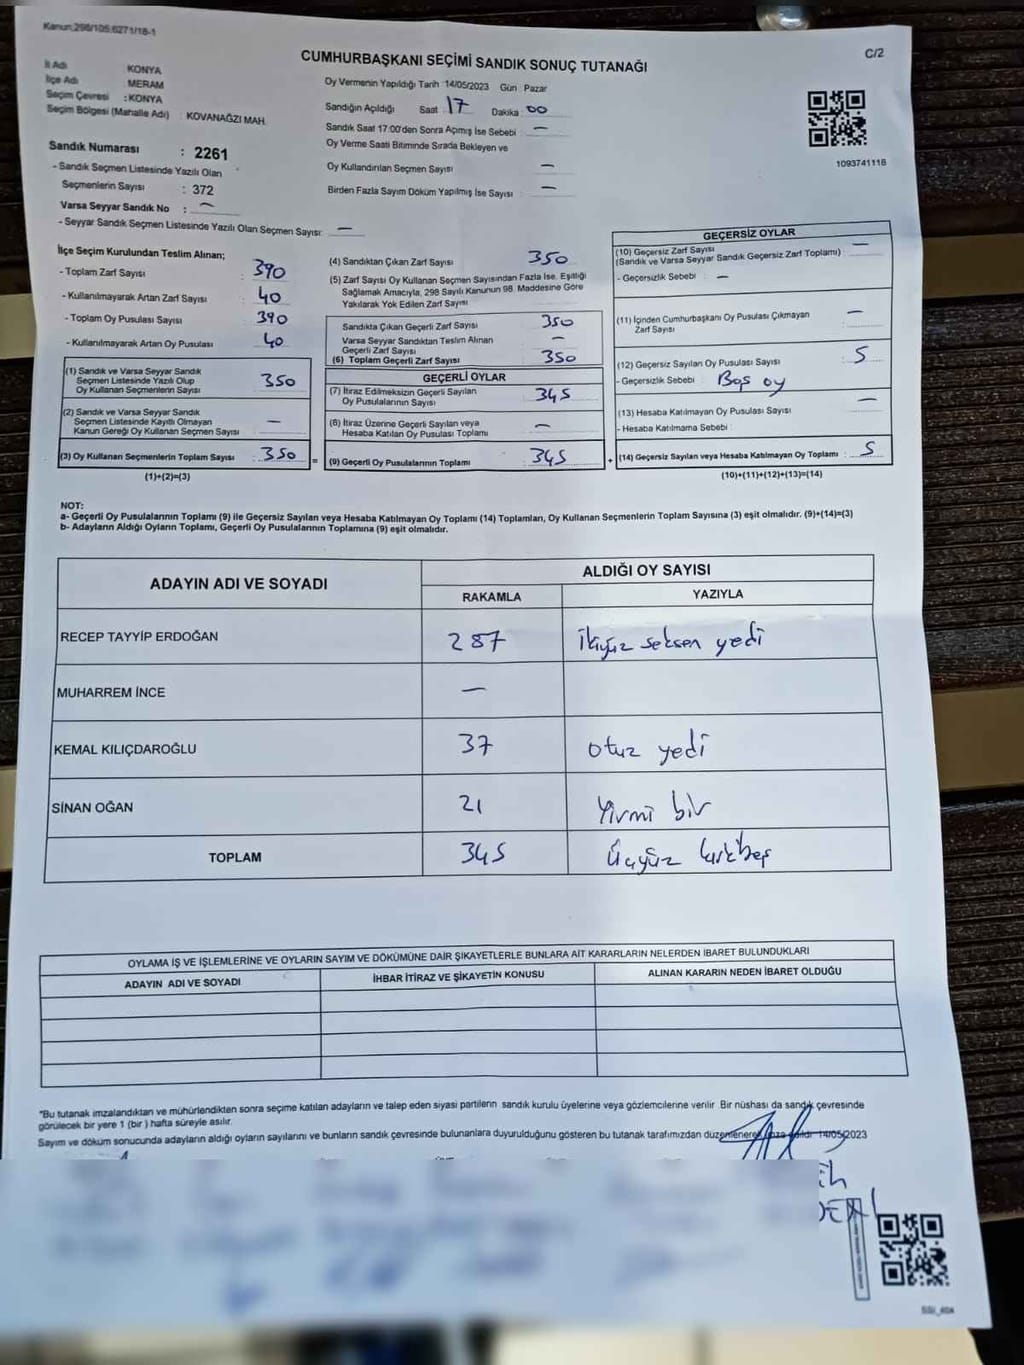 Kanun:298/105;6271/18-1
C/2
CUMHURBAŞKANI SEÇİMİ SANDIK SONUÇ TUTANAĞI
İl Adı KONYA
İlçe Adı MERAM
Seçim Çevresi : KONYA
Seçim Bölgesi (Mahalle Adı) : KOVANAĞZI MAH.
Oy Vermenin Yapıldığı Tarih 14/05/2023 Gün Pazar
Sandığın Açıldığı Saat 17 Dakika 00
Sandık Saat 17:00'den Sonra Açımış İse Sebebi : —
Oy Verme Saati Bitiminde Sırada Bekleyen ve
Oy Kullandırılan Seçmen Sayısı —
Birden Fazla Sayım Döküm Yapılmış İse Sayısı —
1093741118
Sandık Numarası : 2261
- Sandık Seçmen Listesinde Yazılı Olan
Seçmenlerin Sayısı : 372
Varsa Seyyar Sandık No : —
- Seyyar Sandık Seçmen Listesinde Yazılı Olan Seçmen Sayısı: —
İlçe Seçim Kurulundan Teslim Alınan;
- Toplam Zarf Sayısı : 390
- Kullanılmayarak Artan Zarf Sayısı : 40
- Toplam Oy Pusulası Sayısı : 390
- Kullanılmayarak Artan Oy Pusulası : 40
(1) Sandık ve Varsa Seyyar Sandık
Seçmen Listesinde Yazılı Olup
Oy Kullanan Seçmenlerin Sayısı : 350
(2) Sandık ve Varsa Seyyar Sandık
Seçmen Listesinde Kayıtlı Olmayan
Kanun Gereği Oy Kullanan Seçmen Sayısı : —
(3) Oy Kullanan Seçmenlerin Toplam Sayısı : 350
(1)+(2)=(3)
(4) Sandıktan Çıkan Zarf Sayısı : 350
(5) Zarf Sayısı Oy Kullanan Seçmen Sayısından Fazla İse, Eşitliği
Sağlamak Amacıyla, 298 Sayılı Kanunun 98. Maddesine Göre
Yakılarak Yok Edilen Zarf Sayısı
Sandıkta Çıkan Geçerli Zarf Sayısı : 350
Varsa Seyyar Sandıktan Teslim Alınan
Geçerli Zarf Sayısı : —
(6) Toplam Geçerli Zarf Sayısı : 350
GEÇERLİ OYLAR
(7) İtiraz Edilmeksizin Geçerli Sayılan
Oy Pusulalarının Sayısı : 345
(8) İtiraz Üzerine Geçerli Sayılan veya
Hesaba Katılan Oy Pusulası Toplamı : —
= (9) Geçerli Oy Pusulalarının Toplamı : 345 +
GEÇERSİZ OYLAR
(10) Geçersiz Zarf Sayısı
(Sandık ve Varsa Seyyar Sandık Geçersiz Zarf Toplamı) : —
- Geçersizlik Sebebi : —
(11) İçinden Cumhurbaşkanı Oy Pusulası Çıkmayan
Zarf Sayısı : —
(12) Geçersiz Sayılan Oy Pusulası Sayısı : 5
- Geçersizlik Sebebi : Boş oy
(13) Hesaba Katılmayan Oy Pusulası Sayısı : —
- Hesaba Katılmama Sebebi :
(14) Geçersiz Sayılan veya Hesaba Katılmayan Oy Toplamı : 5
(10)+(11)+(12)+(13)=(14)
NOT:
a- Geçerli Oy Pusulalarının Toplamı (9) ile Geçersiz Sayılan veya Hesaba Katılmayan Oy Toplamı (14) Toplamları, Oy Kullanan Seçmenlerin Toplam Sayısına (3) eşit olmalıdır. (9)+(14)=(3)
b- Adayların Aldığı Oyların Toplamı, Geçerli Oy Pusulalarının Toplamına (9) eşit olmalıdır.
ADAYIN ADI VE SOYADI
ALDIĞI OY SAYISI
RAKAMLA YAZIYLA
RECEP TAYYİP ERDOĞAN 287 ikiyüz seksen yedi
MUHARREM İNCE —
KEMAL KILIÇDAROĞLU 37 otuz yedi
SİNAN OĞAN 21 Yirmi bir
TOPLAM 345 Üçyüz kırkbeş
OYLAMA İŞ VE İŞLEMLERİNE VE OYLARIN SAYIM VE DÖKÜMÜNE DAİR ŞİKAYETLERLE BUNLARA AİT KARARLARIN NELERDEN İBARET BULUNDUKLARI
ADAYIN ADI VE SOYADI İHBAR İTİRAZ VE ŞİKAYETİN KONUSU ALINAN KARARIN NEDEN İBARET OLDUĞU
"Bu tutanak imzalandıktan ve mühürlendikten sonra seçime katılan adayların ve talep eden siyasi partilerin sandık kurulu üyelerine veya gözlemcilerine verilir. Bir nüshası da sandık çevresinde
görülecek bir yere 1 (bir) hafta süreyle asılır.
Sayım ve döküm sonucunda adayların aldığı oyların sayılarını ve bunların sandık çevresinde bulunanlara duyurulduğunu gösteren bu tutanak tarafımızdan düzenlenerek imza edildi 14/05/2023